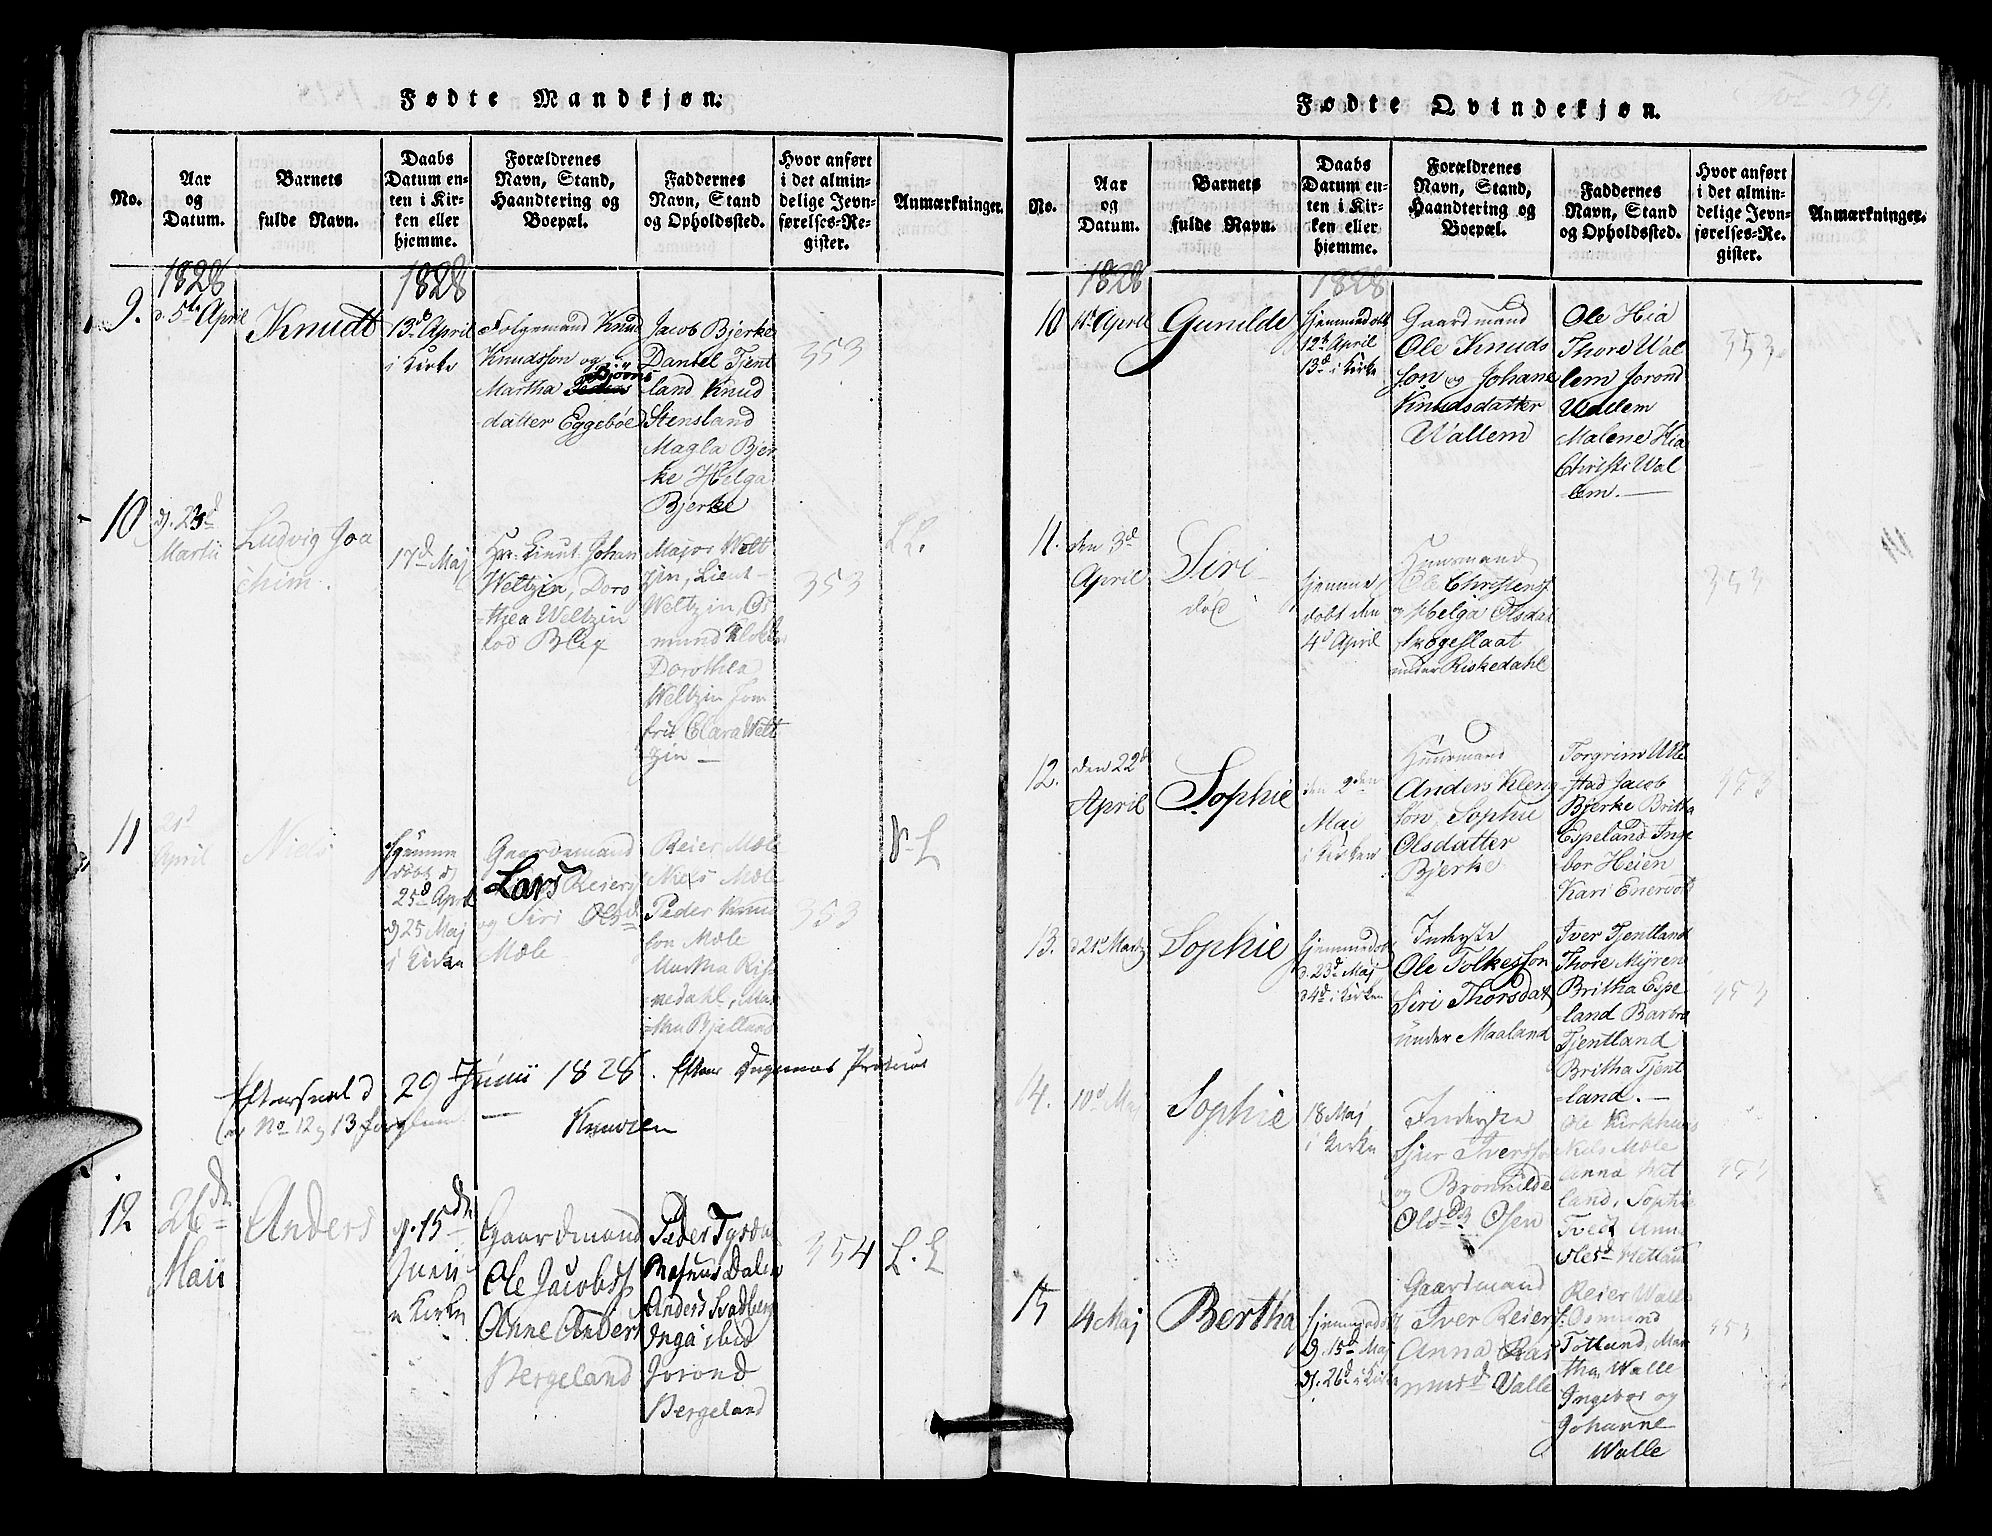 Fødte Mandkjøn.
No.
Aar
og
Datum.
Barnets
fulde Navn.
Daabs
Datum en-
ten i Kir-
ken eller
hjemme.
Forældrenes
Navn, Stand,
Haandtering og
Boepæl.
Faddernes
Navn, Stand
og Opholdssted.
Hvor anført
i det almin-
delige Jevn-
førelses-Re-
gister.
Anmærkninger.
1828
1828
9.
5te April
Knudt
13d April
i Kirke
Knud
Knudsson og
Bjørns
Martha
datter Eggebøe
Jacob Bjerke
Daniel Tjent
land Knud
Stensland
Magla Bjer
ke Helga
Bjerke
353
10
d. 23d
Martii
Ludvig Joa
chim.
17d Maj
Hr. Lieut. Johan
Weltzin, Doro
thea Weltzin
Major Welt
zin, Lieut
Weltzin, Os
mund
Dorothea
Weltzin Jom
fru Clara Welt
zin
353
L L.
11
21d
April
Niels
hjemme
døbt d
25d April
d 25 Maj
i Kirke
Gaardmand
Lars Reiers
og Siri Olsd
Mæle
Reier Mæle
Niels Mæle
Peder Knud
son Mæle
Martha Ris
nedahl, Mar
tha Bjelland
353
Efterseet d. 29 Junii 1828.
No 12 & 13
Knudsen
12
26de
Maii
Anders
d. 15de
Junii
i Kirke
Gaardmand
Ole Jacobss
Anne Anders
Bergeland
Peder Tysda
Rasmus Dalen
Anders Svadberg
Inga ibid
Jorond
Bergeland
354
L. L
Fødte Qvindekjøn.
39.
No.
Aar
og
Datum.
Barnets
fulde Navn.
Daabs
Datum en-
ten i Kir-
ken eller
hjemme.
Forældrenes
Navn, Stand,
Haandtering og
Boepæl.
Faddernes
Navn, Stand
og Opholdssted.
Hvor anført
i det almin-
delige Jevn-
førelses-Re-
gister.
Anmærkninger.
1828
1828
10
11d April
Gunilde
hjemmedøbt
12te April
13d i Kirke
Gaardmand
Ole Knuds
son og Johane
Knudsdatter
Wallem
Ole Hia
Thore Wal
lem Jorond
Wallem
Malene Hia
Christi Wal
lem.
353
11.
den 3d
April
Siri
død
hjemme
døbt den
4d April
Huusmand
Ole Christens
og Helga Olsdat
under Riskedahl
353
12.
den 22d
April
Sophie
den 9den
Mai
i Kirken
Huusmand
Anders Kleng
søn, Sophie
Olsdatter
Bjerke
Torgrim Wle
stad Jacob
Bjerke Britha
Espeland Inge
bor Heien
Kari Enervol
353
13.
d 21d Martz
Sophie
hjemmedøbt
d. 23d Maj
d 4d i Kirken
Inderste
Ole Tolkesson
Siri Thorsdat
under Maaland
Iver Tjentland
Thore Myren
Britha Espe
land Barbra
Tjentland
Britha Tjent
land.
353
14.
10d Maj
Sophie
18 Maj
i Kirke
Inderste
Iverss
og Bronnilde
Olsdtr Osen
Ole Kirkhuus
Niels Mæle
Anna Het
land, Sophie
Tveit Anna
Olesd Hetland
353
15
14 Maj
Bertha
hjemmedøbt
d. 15d Maj
d. 26d i Kirke
Gaardmand
Iver Reier
Anna Ras
musd Valle
Reier Walle
Osmund
Totland, Mar
tha Walle
Ingebor og
Johanne
Walle
353